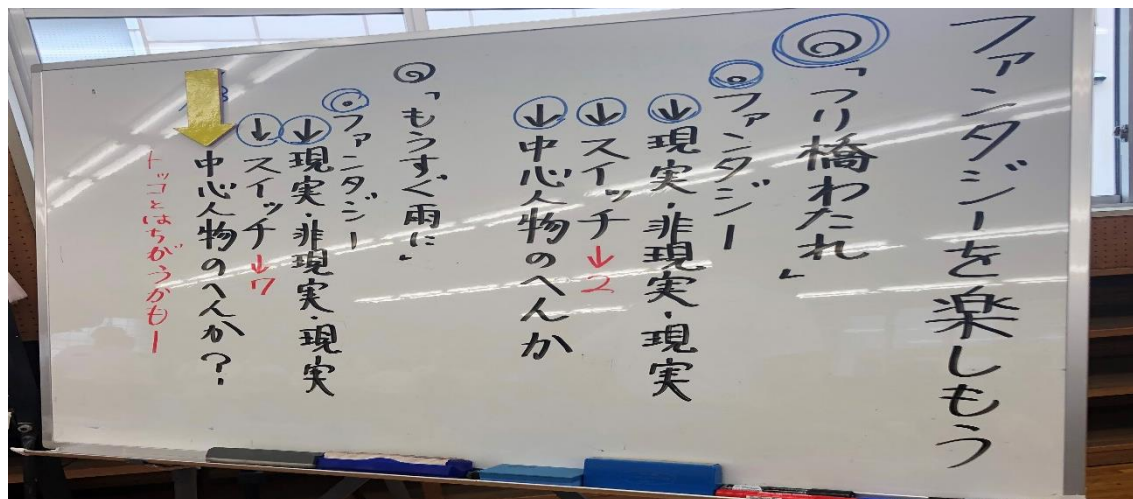 ファンタジーを楽しもう
◎「つり橋わたれ」
⦿ファンタジー
↓現実・非現実・現実
↓スイッチ→2
↓中心人物のへんか
◎「もうすぐ雨に」
⦿ファンタジー
↓現実・非現実・現実
↓スイッチ→7
中心人物のへんか?
トッコとはちがうかもー